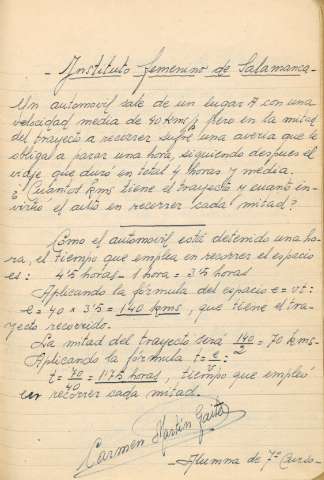 - Instituto femenino de Salamanca -
Un automovil sale de un lugar A con una
velocidad media de 40 kms; pero en la mitad
del trayecto a recorrer sufre una averia que le
obliga a parar una hora, siguiendo despues el
viaje que duró en total 4 horas y media.
¿Cuantos kms tiene el trayecto y cuanto in-
virtió el auto en recorrer cada mitad?
Como el automovil está detenido una ho-
ra, el tiempo que emplea en recorrer el espacio
es: 4'5 horas - 1 hora = 3'5 horas
Aplicando la fórmula del espacio e = vt:
e = 40 x 3'5 = 140 kms, que tiene el tra-
yecto recorrido.
La mitad del trayecto será 140/2 = 70 kms-
Aplicando la fórmula t = e:
t = 70/40 = 1'75 horas, tiempo que empleó
en recorrer cada mitad.
Carmen Martín Gaite
- Alumna de 7º Curso -